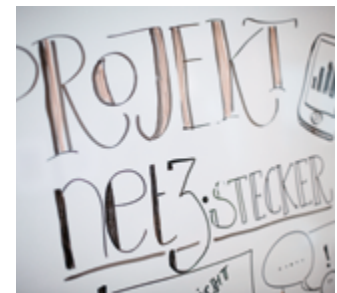 PROJEKT
netz•STECKER
!